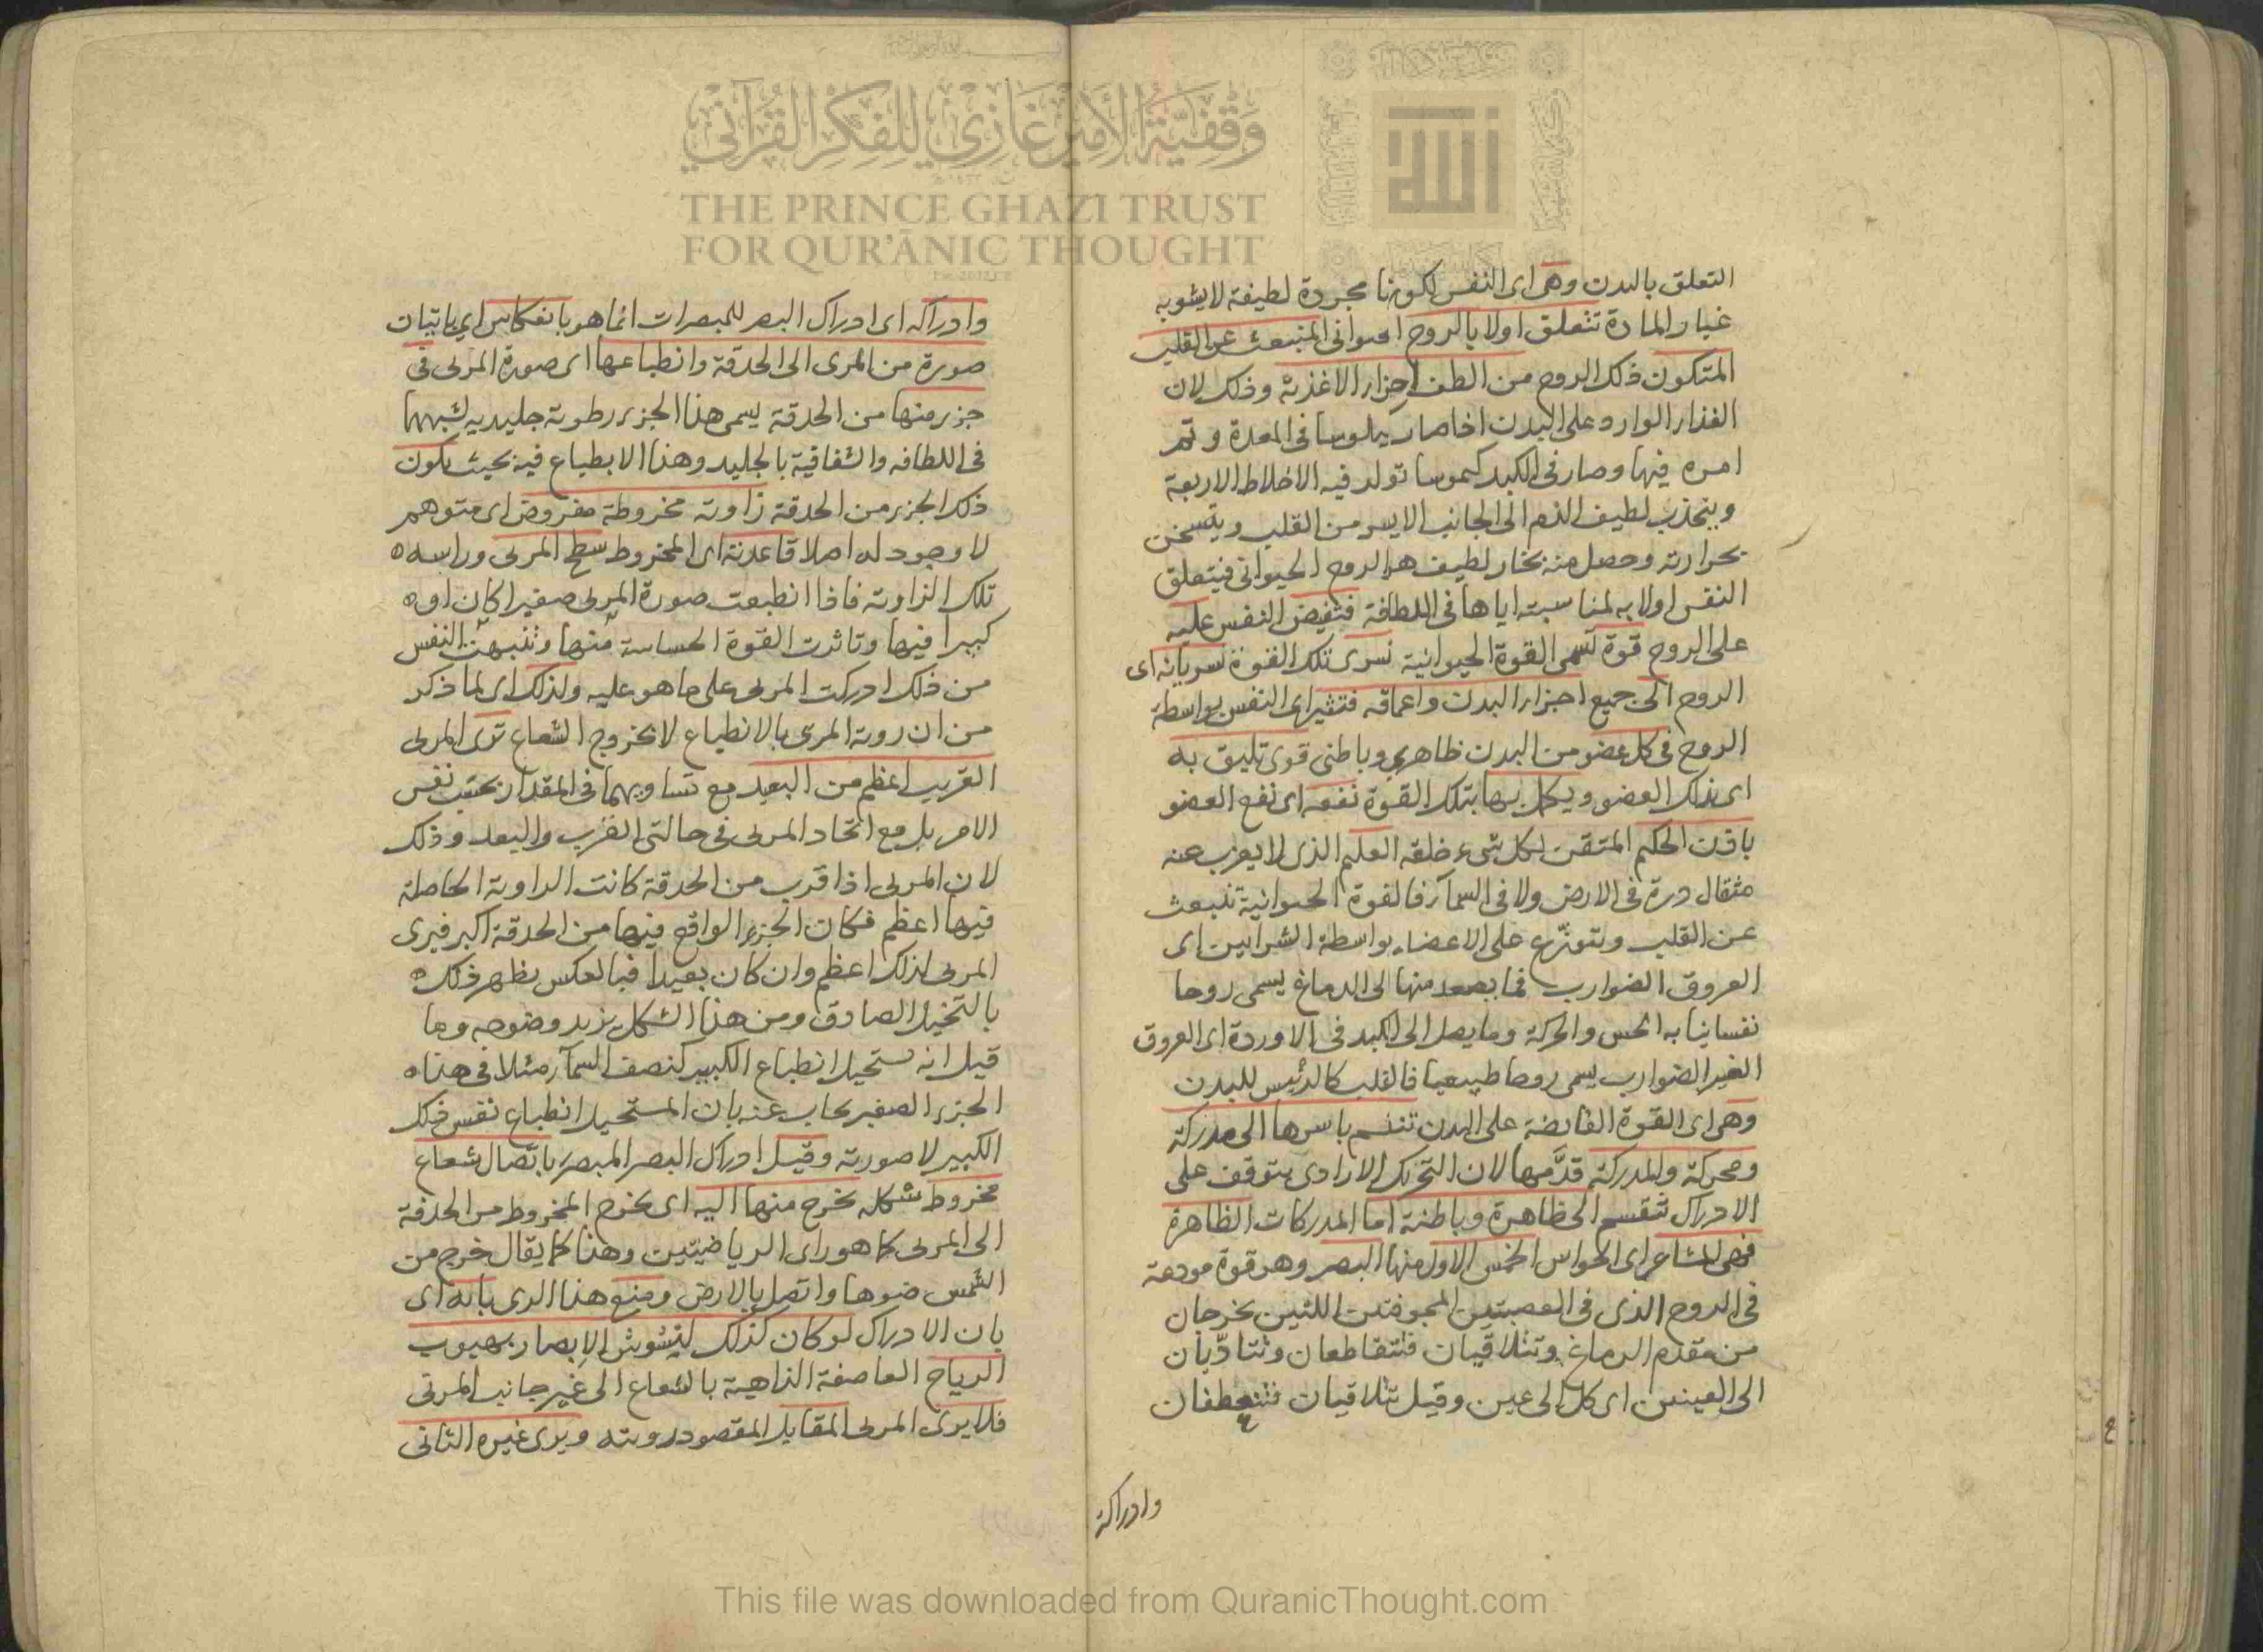 وقفية الأمير غازي للفكر القرآني
THE PRINCE GHAZI TRUST
FOR QUR'ĀNIC THOUGHT
الله
التعلق بالبدن وهى اى النفس لكونها مجردة لطيفة لا يشوبه
غبار المادة تتعلق اولا بالروح الحيوانى المنبعث عن القلب
المتكون ذلك الروح من الطف اجزاء الاغذية وذلك لان
الغذاء الوارد على البدن اذا صار كيلوسا فى المعدة وتم
امره فيها وصار فى الكبد كيموسا تولد فيه الاخلاط الاربعة
وينجذب لطيف الدم الى الجانب الايسر من القلب ويتسخن
بحرارته وحصل منه بخار لطيف هو الروح الحيوانى فيتعلق
النفس اولا به لمناسبته اياها فى اللطافة فتفيض النفس عليه
على الروح قوة تسمى القوة الحيوانية تسرى تلك القوة بسريانه اى
الروح الى جميع اجزاء البدن واعماقه فتثير اى النفس بواسطة
الروح فى كل عضو من البدن ظاهرى وباطنى قوى تليق به
اى بذلك العضو ويكمل بها بتلك القوة نفعه اى نفع العضو
باذن الحكيم المتقن لكل شىء خلقه العليم الذى لا يعزب عنه
مثقال درة فى الارض ولا فى السمآء فالقوة الحيوانية تنبعث
عن القلب وتتوزع على الاعضاء بواسطة الشرايين اى
العروق الضوارب فما يصعد منها الى الدماغ يسمى روحا
نفسانيا به الحس والحركة وما يصل الى الكبد فى الاوردة اى العروق
الغير الضوارب يسمى روحا طبيعيا فالقلب كالرئيس للبدن
وهى اى القوة الفائضة على البدن تنقسم باسرها الى مدركة
ومحركة والمدركة قدّمها لان التحريك الارادى يتوقف على
الادراك تنقسم الى ظاهرة وباطنة اما المدركات الظاهرة
فهى المشاعر اى الحواس الخمس الاول منها البصر وهو قوة مودعة
فى الروح الذى فى العصبتين المجوفتين اللتين يخرجان
من مقدم الدماغ وتتلاقيان فتتقاطعان وتتادّيان
الى العينين اى كل الى عين وقيل تتلاقيان فتنعطفان
وادراكه
وادراكه اى ادراك البصر للمبصرات انما هو بانعكاس اى باتيان
صورة من المرى الى الحدقة وانطباعها اى صورة المرئى فى
جزء منها من الحدقة يسمى هذا الجزء رطوبة جليدية لشبهها
فى اللطافه والشفافية بالجليد وهذا الانطباع فيه بحيث يكون
ذلك الجزء من الحدقة زاوية مخروطة مفروض اى متوهم
لا وجود له اصلا قاعدته اى المخروط سطح المرئى وراسه
تلك الزاوية فاذا انطبعت صورة المرئى صغيرا كان او
كبيرا فيها وتاثرت القوة الحساسة منها وتنبهت النفس
من ذلك ادركت المرئى على ما هو عليه ولذلك اى لما ذكر
من ان روية المرئى بالانطباع لا بخروج الشعاع ترى المرئى
القريب اعظم من البعيد مع تساويهما فى المقدار بحسب نفس
الامر بل مع اتحاد المرئى فى حالتى القرب والبعد وذلك
لان المرئى اذا قرب من الحدقة كانت الزاوية الحاصلة
فيها اعظم فكان الجزء الواقع فيها من الحدقة اكبر فيرى
المرئى لذلك اعظم وان كان بعيدا فبالعكس يظهر ذلك
بالتخيل الصادق ومن هذا الشكل يزيد وضوحه وما
قيل انه يستحيل انطباع الكبير كنصف السمآء مثلا فى هذا
الجزء الصغير يجاب عنه بان المستحيل انطباع نفس ذلك
الكبير لا صورته وقيل ادراك البصر المبصر باتصال شعاع
مخروط شكله يخرج منها اليه اى يخرج المخروط من الحدقة
الى المرئى كما هو راى الرياضيتين وهذا كما يقال خرج من
الشمس ضوها واتصل بالارض ومنع هذا الرى بانه اى
بان الادراك لو كان كذلك ليتشوش الابصار بهبوب
الرياح العاصفة الذاهبة بالشعاع الى غير جانب المرئى
فلا يرى المرئى المقابل المقصود رويته ويرى غيره الثانى
This file was downloaded from QuranicThought.com